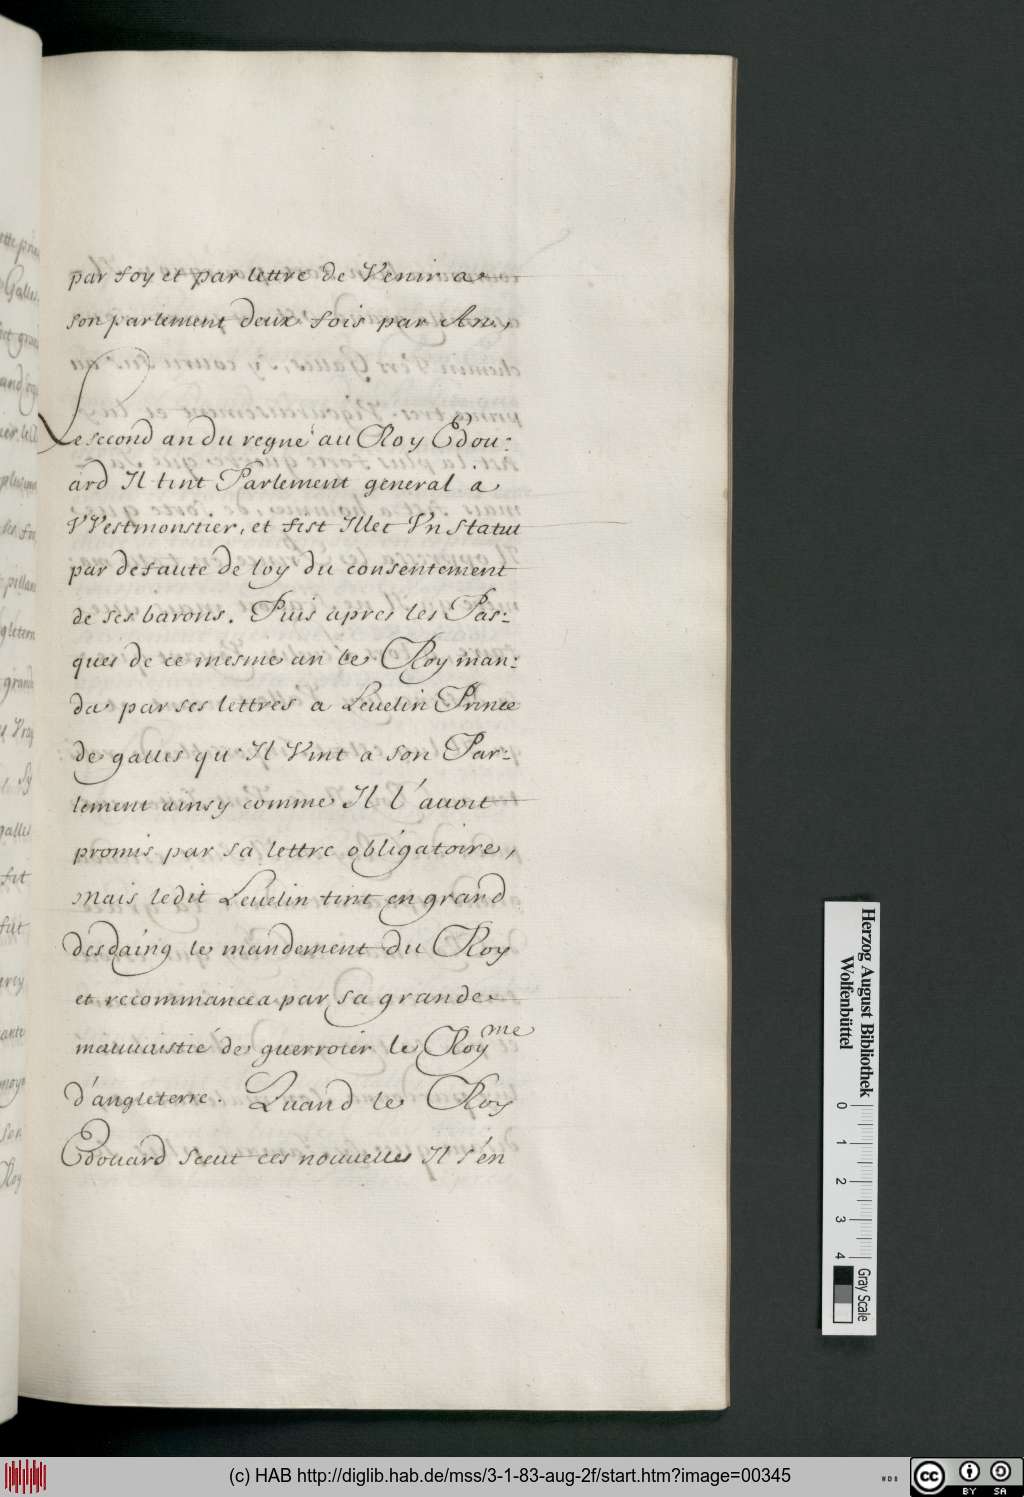 par foy et par lettre de Venir a
son parlement deux fois par An,
Le second an du regne au Roy Edou:
ard Il tint Parlement general a
VVestmonstier, et fist Illec Vn statut
par defaute de loy du consentement
de ses barons. Puis apres les Pas:
ques de ce mesme an le Roy man:
da par ses lettres a Leuelin Prince
de galles qu'Il Vint a son Par:
lement ainsy comme Il l'auoit
promis par sa lettre obligatoire,
Mais ledit Leuelin tint en grand
desdaing le mandement du Roy
et recommancea par sa grande
mauuaistié de guerroier le Royme
d'angleterre. Quand le Roy
Edouard sceut ces nouuelles Il s'én
Herzog August Bibliothek
Wolfenbüttel
0 1 2 3 4
Gray Scale
(c) HAB http://diglib.hab.de/mss/3-1-83-aug-2f/start.htm?image=00345
cc BY SA